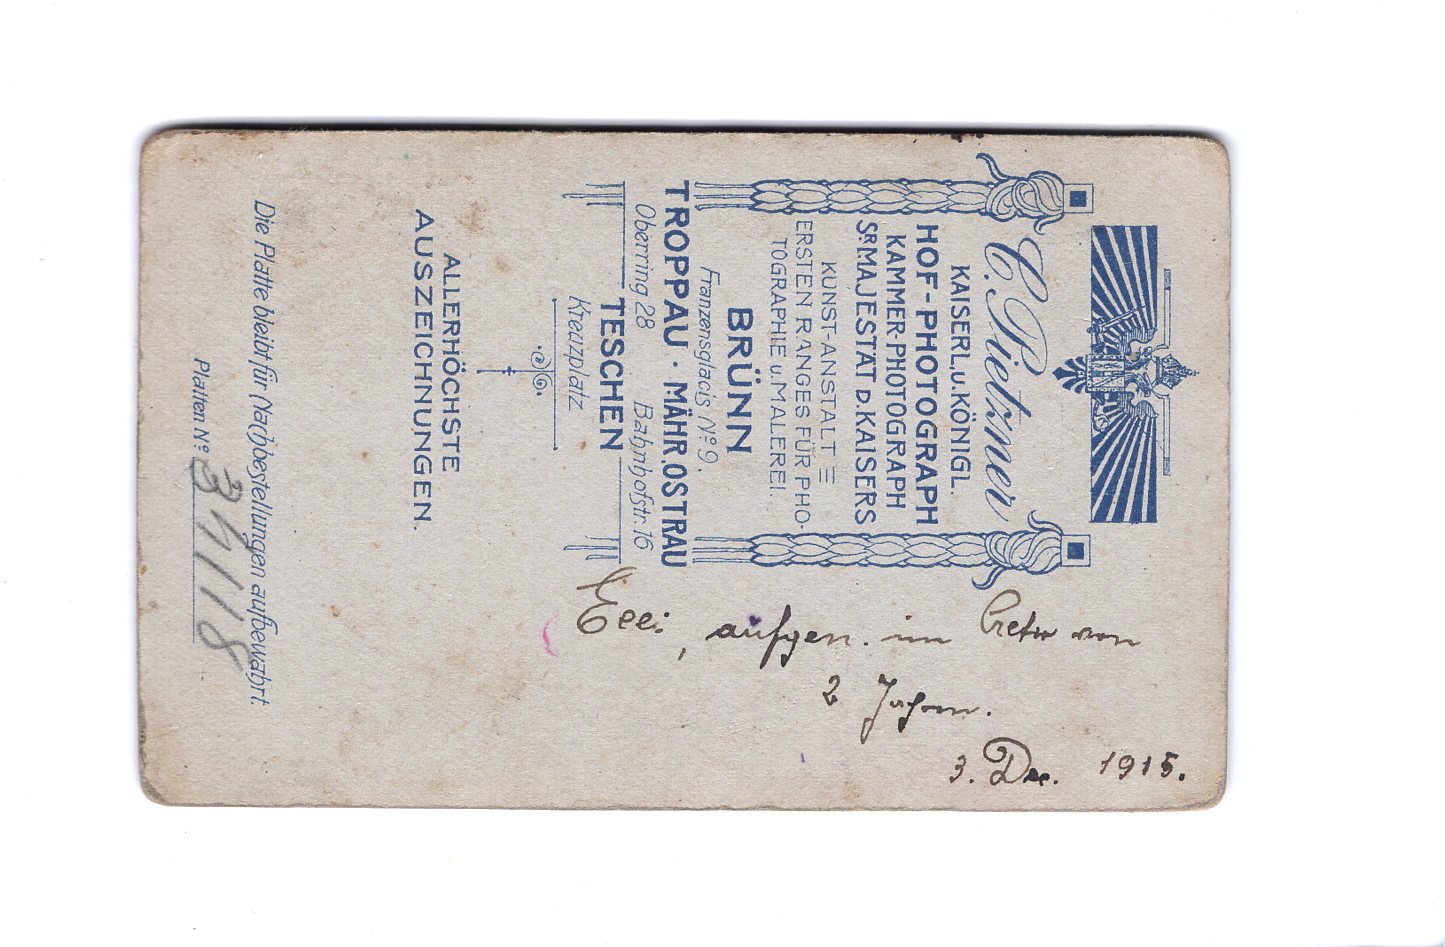 C. Pietzner
KAISERL. u. KÖNIGL.
HOF-PHOTOGRAPH
KAMMER-PHOTOGRAPH
SR. MAJESTÄT D. KAISERS
KUNST-ANSTALT =
ERSTEN RANGES FÜR PHO-
TOGRAPHIE u. MALEREI.
BRÜNN
Franzensglacis No 9.
TROPPAU · MÄHR. OSTRAU
Oberring 28 Bahnhofstr. 16
TESCHEN
Kreuzplatz
ALLERHÖCHSTE
AUSZEICHNUNGEN.
Die Platte bleibt für Nachbestellungen aufbewahrt.
Platten No 34118
Elli, aufgen. im Alter von
2 Jahren.
3. Dez. 1915.